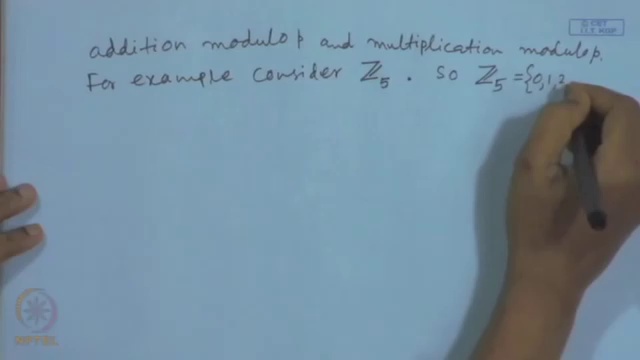 © CET
I.I.T. KGP
addition modulo p and multiplication modulo p.
For example consider ℤ₅ . So ℤ₅ = {0,1,2
NPTEL